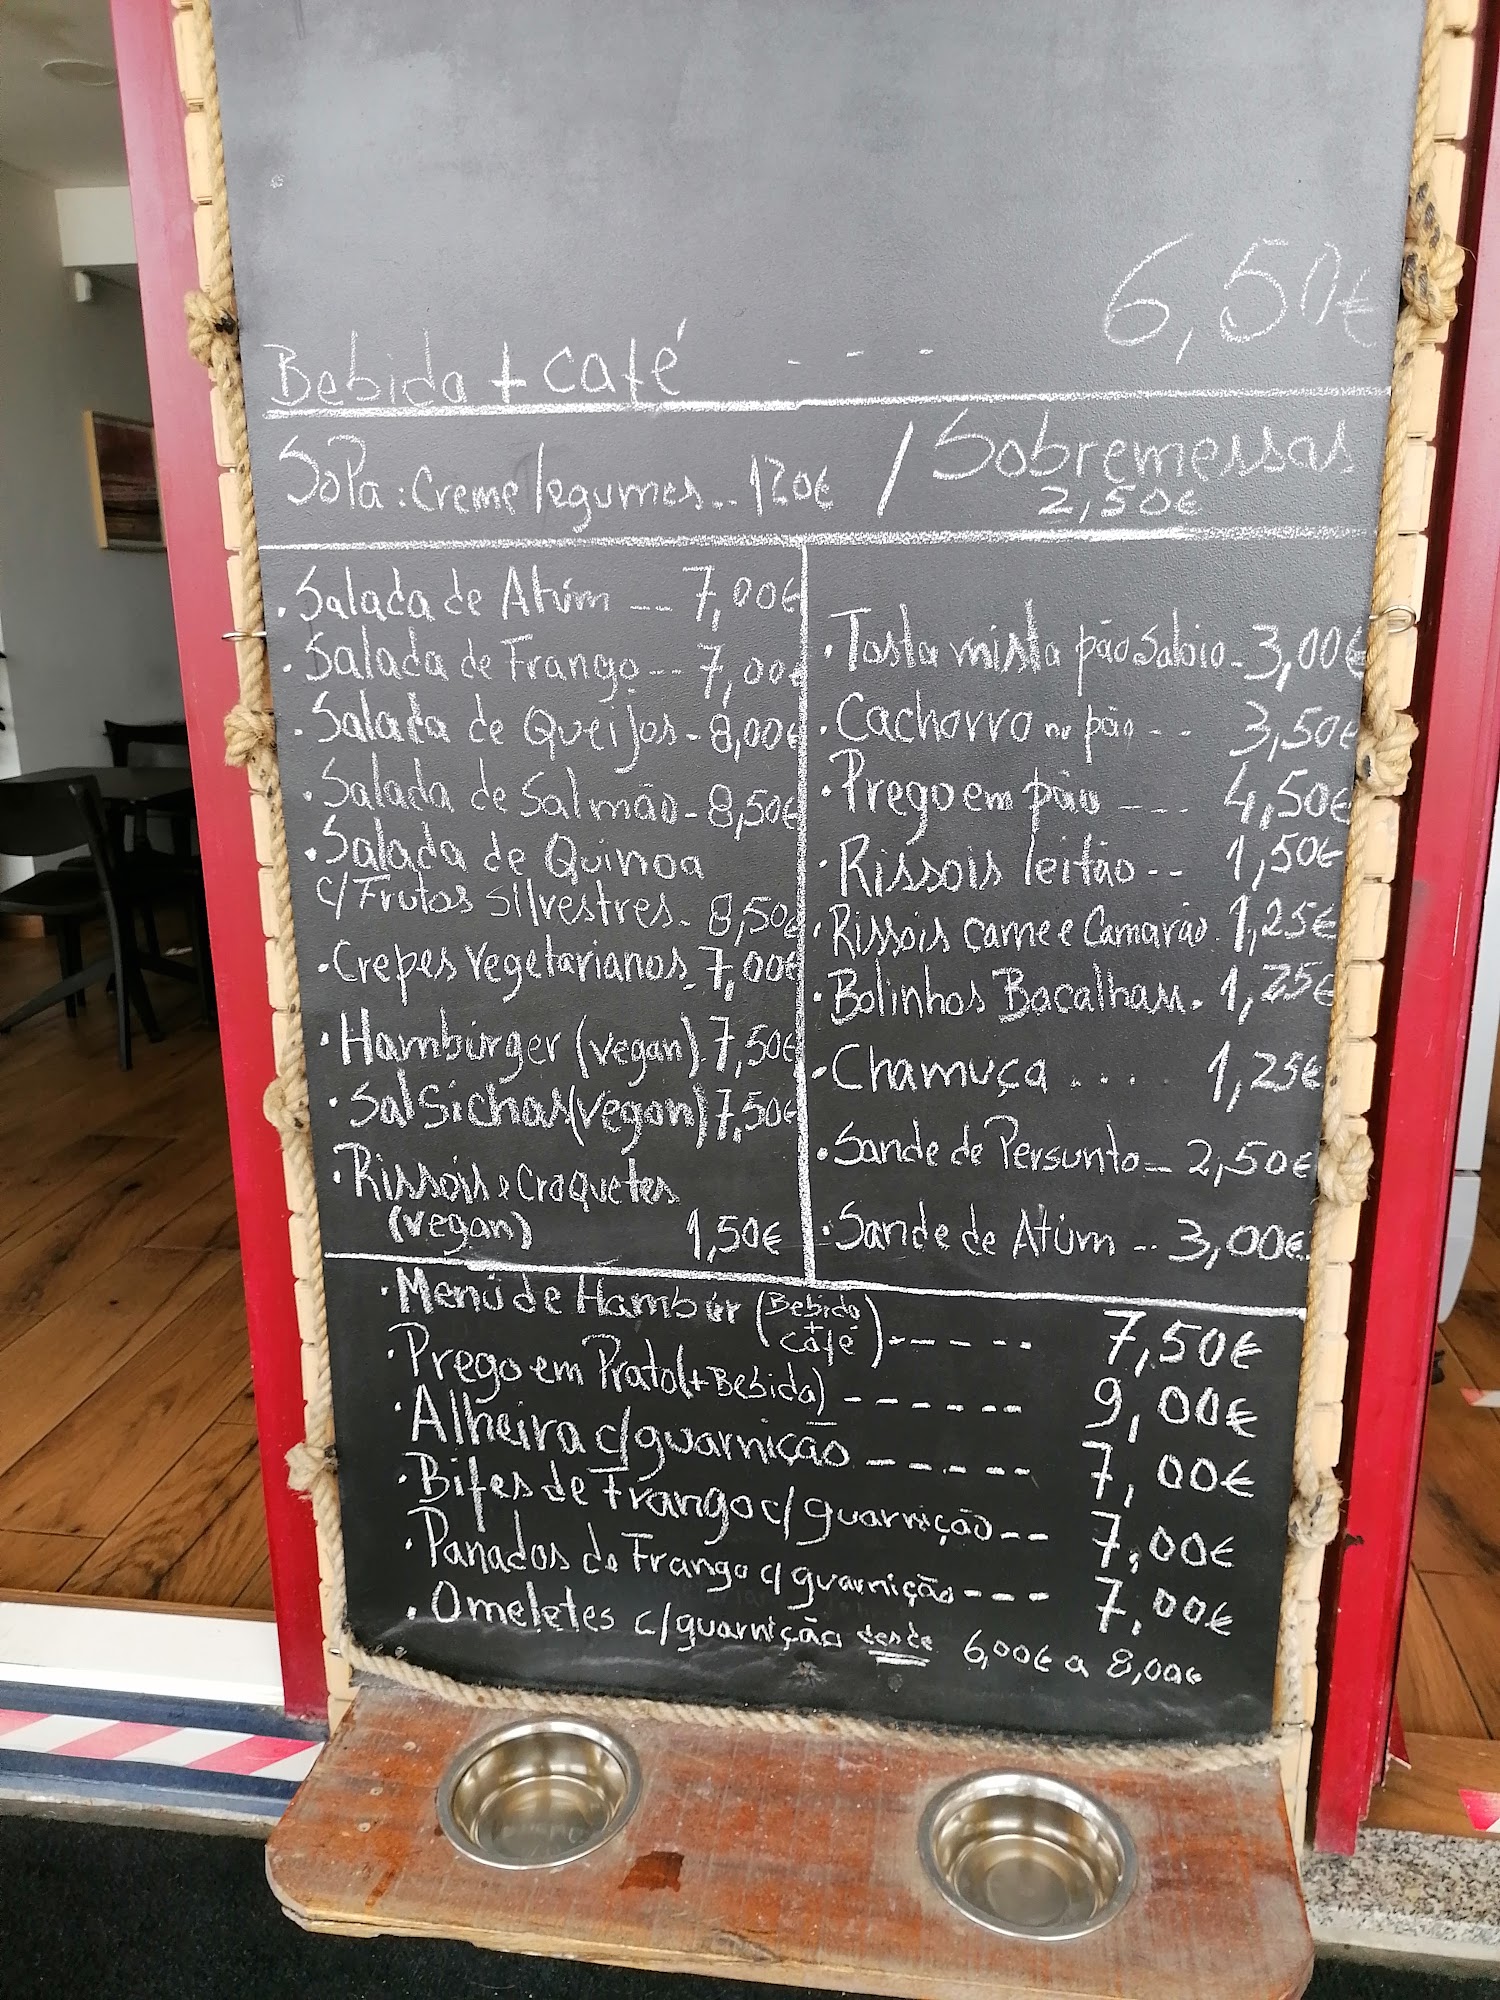 6,50€
Bebida + café - - -
Sopa: Creme legumes.. 120€ / Sobremessas
2,50€
. Salada de Atúm -- 7,00€
. Salada de Frango -- 7,00€
. Salada de Queijos - 8,00€
. Salada de Salmão - 8,50€
. Salada de Quinoa
c/ Frutos silvestres - 8,50€
. Crepes vegetarianos. 7,00€
. Hambúrger (vegan). 7,50€
. Salsichas (vegan) 7,50€
. Rissóis e Croquetes
(vegan) 1,50€
. Tosta mista pão Saloio - 3,00€
. Cachorro no pão -- 3,50€
. Prego em pão --- 4,50€
. Rissois leitão -- 1,50€
. Rissois carne e Camarão. 1,25€
. Bolinhos Bacalhau. 1,25€
. Chamuça .... 1,25€
. Sande de Persunto -- 2,50€
. Sande de Atúm -- 3,00€
. Menú de Hambúr (Bebida + café) ----- 7,50€
. Prego em Prato (+ Bebida) ------ 9,00€
. Alheira c/ guarnição ----- 7,00€
. Bifes de Frango c/ guarnição -- 7,00€
. Panados de Frango c/ guarnição --- 7,00€
. Omeletes c/ guarnição desde 6,00€ a 8,00€